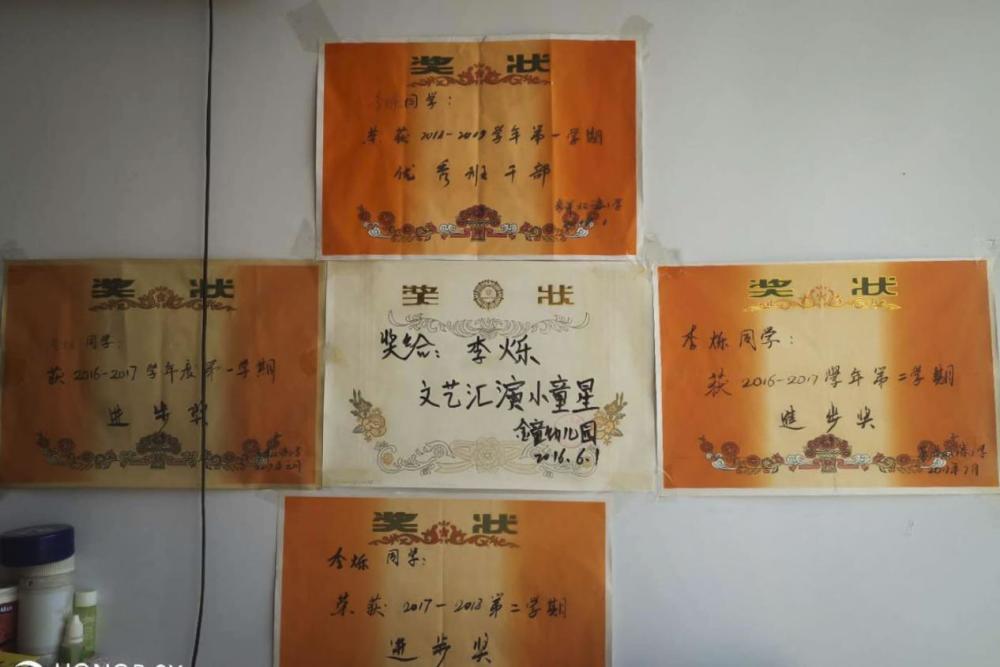 奖状
李烁同学：
荣获2018-2019学年第一学期
优秀班干部
奖状
同学：
获2016-2017学年度第一学期
进步奖
奖状
奖给：李烁
文艺汇演小童星
金童幼儿园
2016.6.1
奖状
李烁同学：
获2016-2017学年第二学期
进步奖
2017年7月
奖状
李烁同学：
荣获2017-2018第二学期
进步奖